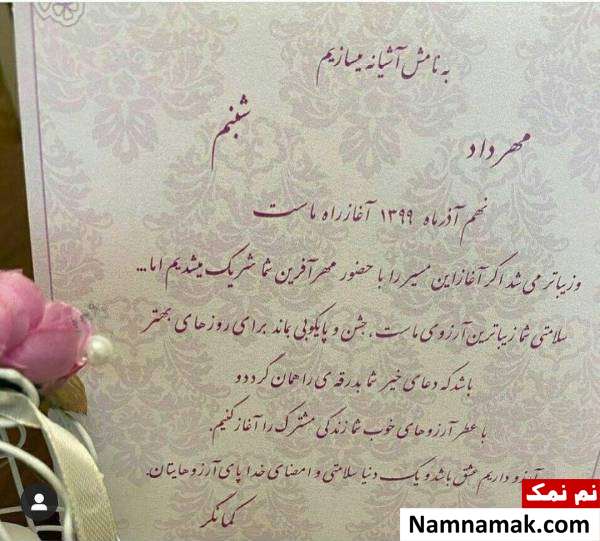 به نامش آشیانه میسازیم
مهرداد
شبنم
نهم آذرماه ۱۳۹۹ آغاز راه ماست
وزیباتر می شد اگر آغاز این مسیر را با حضور مهرآفرین شما شریک میشدیم اما...
سلامتی شما زیباترین آرزوی ماست، جشن و پایکوبی بماند برای روزهای بهتر
باشد که دعای خیر شما بدرقه ی راهمان گردد و
با عطر آرزوهای خوب شما زندگی مشترک را آغاز کنیم.
آرزو داریم عشق باشد و یک دنیا سلامتی و امضای خدا پای آرزوهایتان.
کمانگر
نم نمک
Namnamak.com